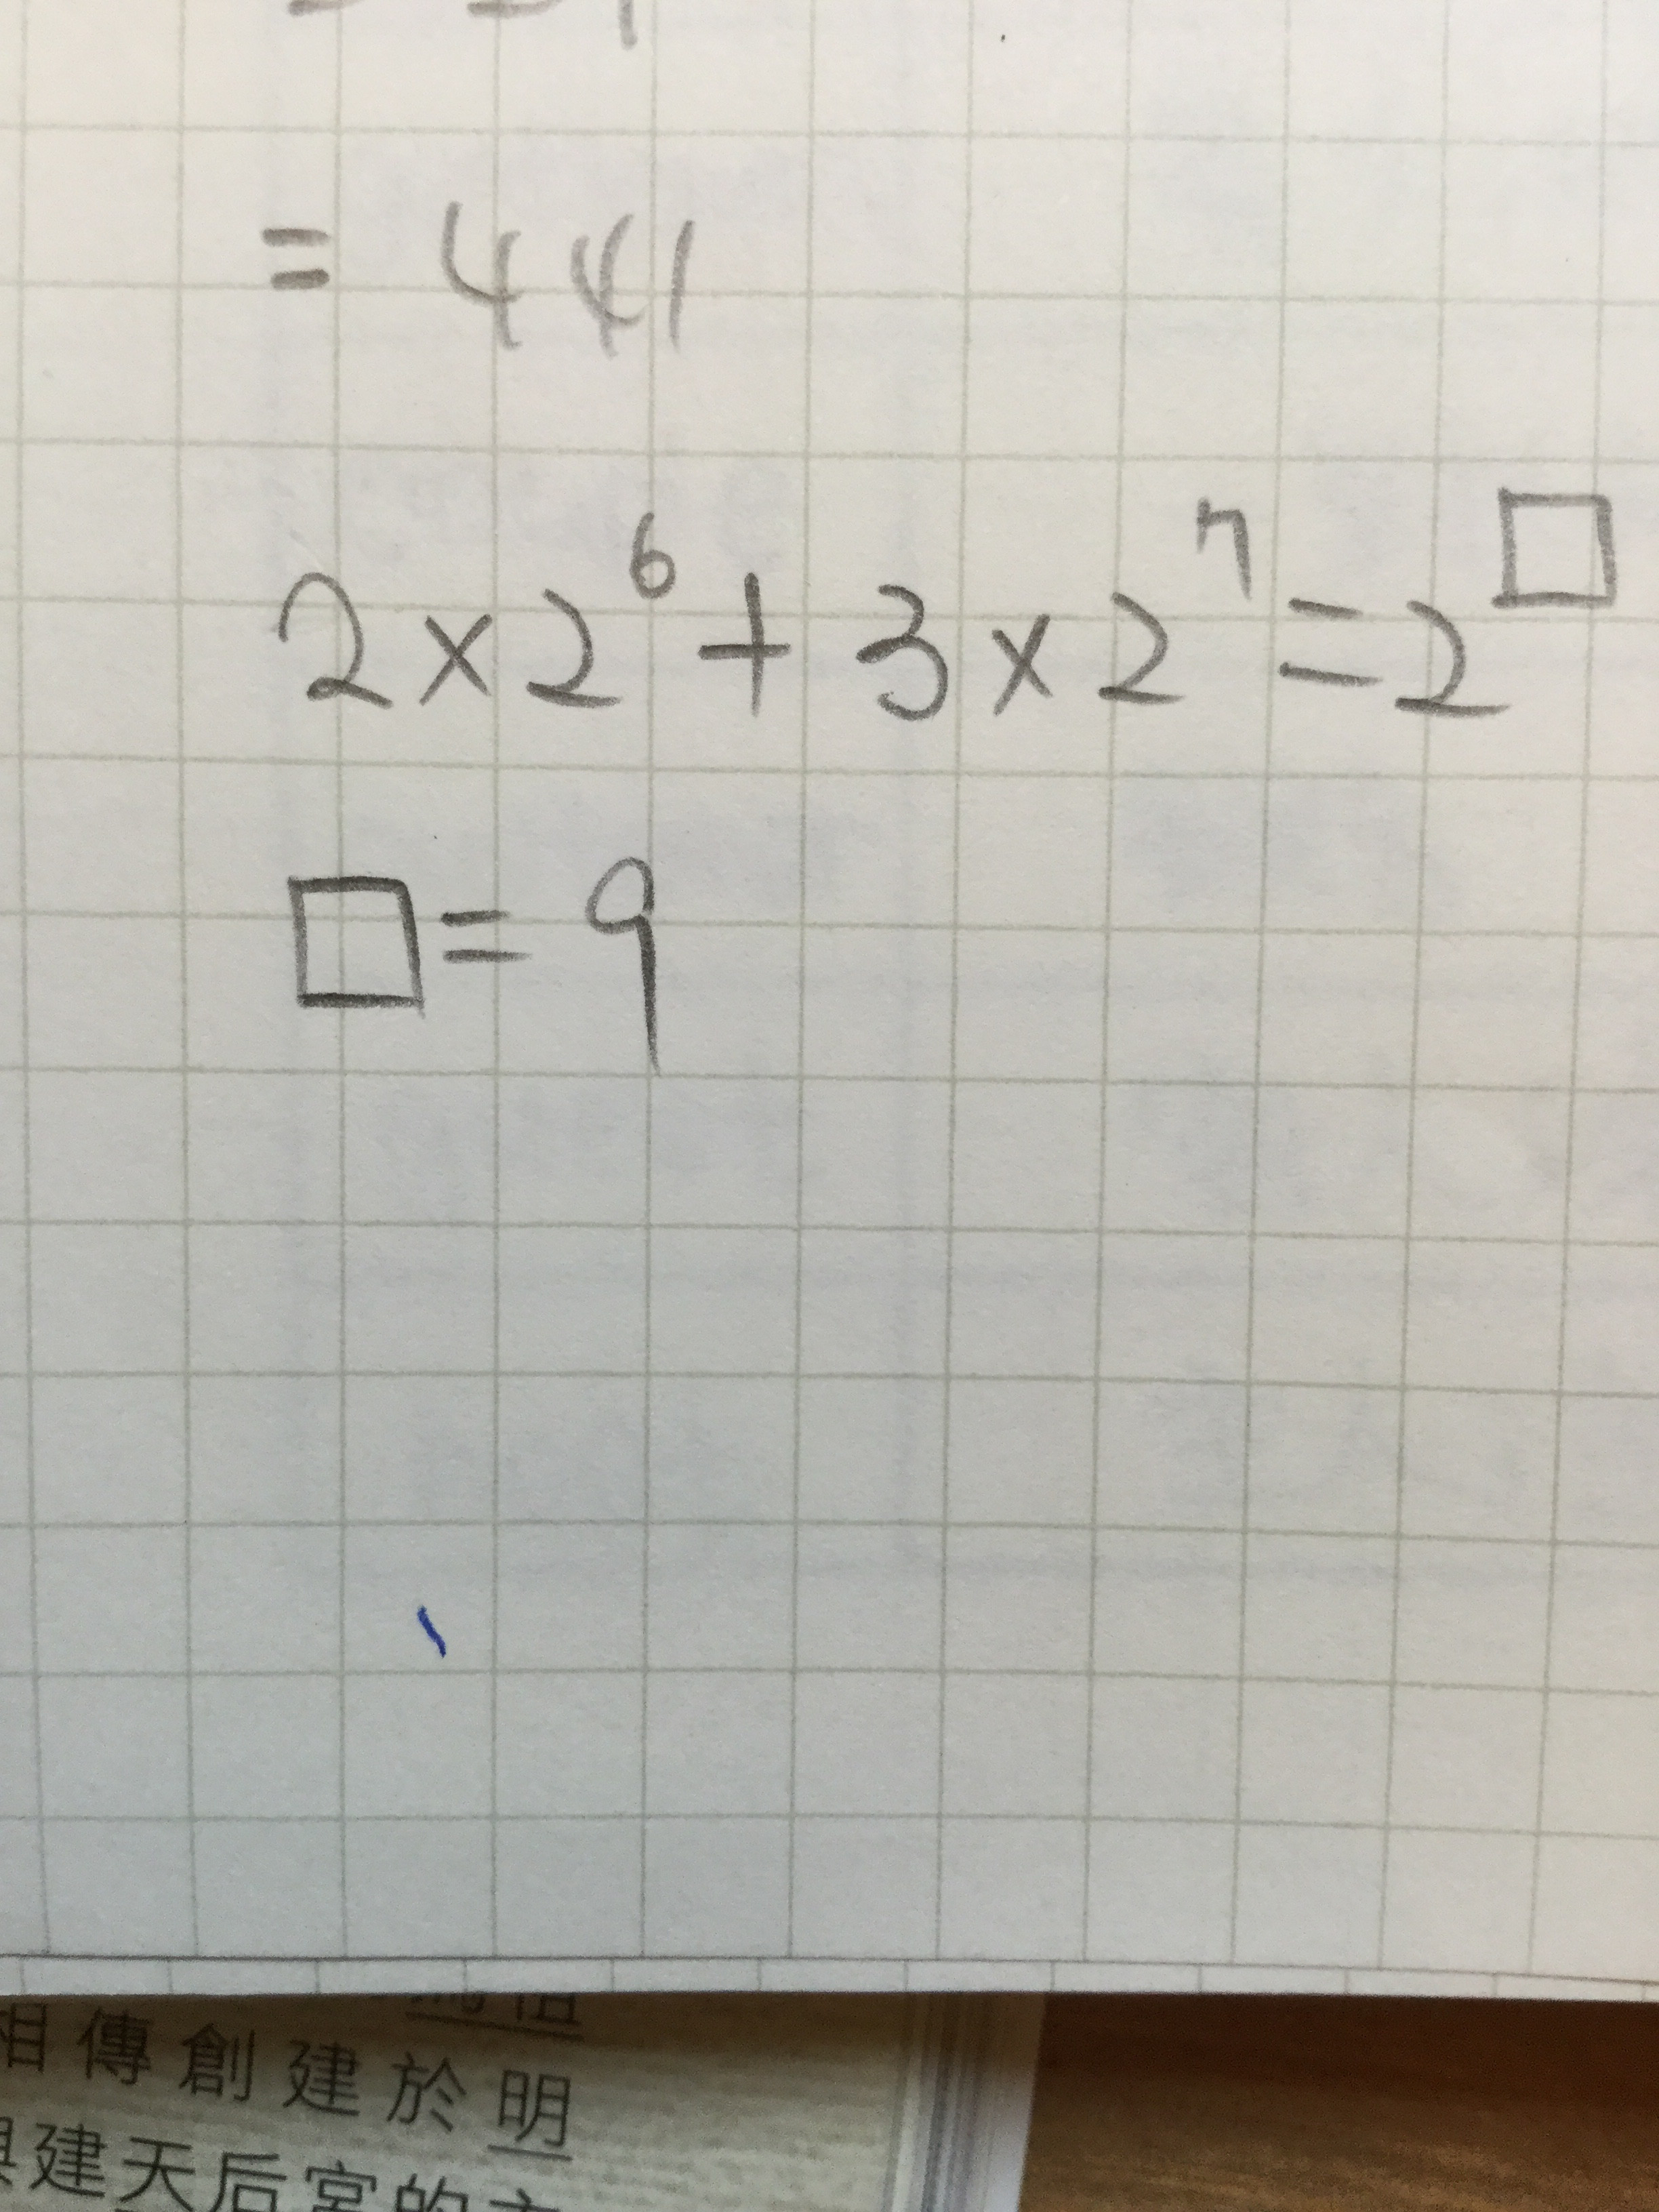 = 441
2×2⁶+3×2⁷=2^□
□=9
相傳創建於明
建天后宮的